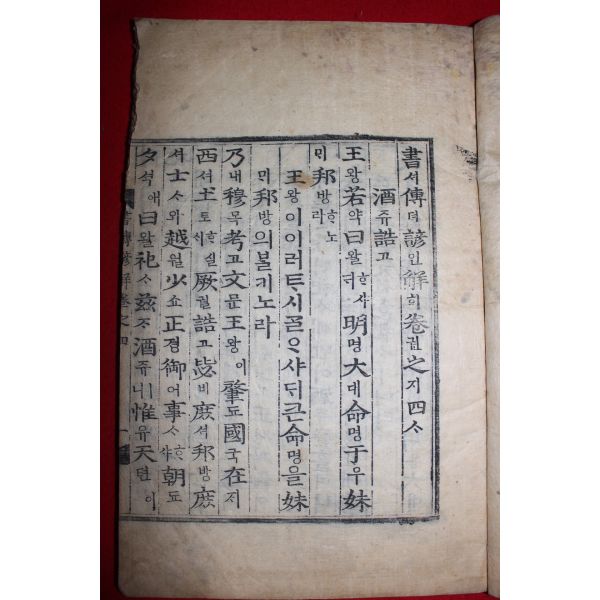 書셔傳뎐諺언解ᄒᆡ卷권之지四ᄉᆞ
酒쥬誥고
王왕若약曰왈ᄒᆞ샤ᄃᆡ明명大대命명于우妹
ᄆᆡ邦방ᄒᆞ노라
王왕이이러ᄐᆞ시ᄀᆞᆯᄋᆞ샤ᄃᆡ큰命명을妹
ᄆᆡ邦방의ᄇᆞᆯ기노라
乃내穆목考고文문王왕이肇됴國국在ᄌᆡ
西셔土토ᄒᆞ실ᄉᆡ厥궐誥고毖비庶셔邦방庶
셔士ᄉᆞ와越월少쇼正졍御어事ᄉᆞᄒᆞ샤朝됴
夕셕애曰왈祀ᄉᆞ玆ᄌᆞ酒쥬ㅣ니惟유天텬이
書傳諺解卷之四